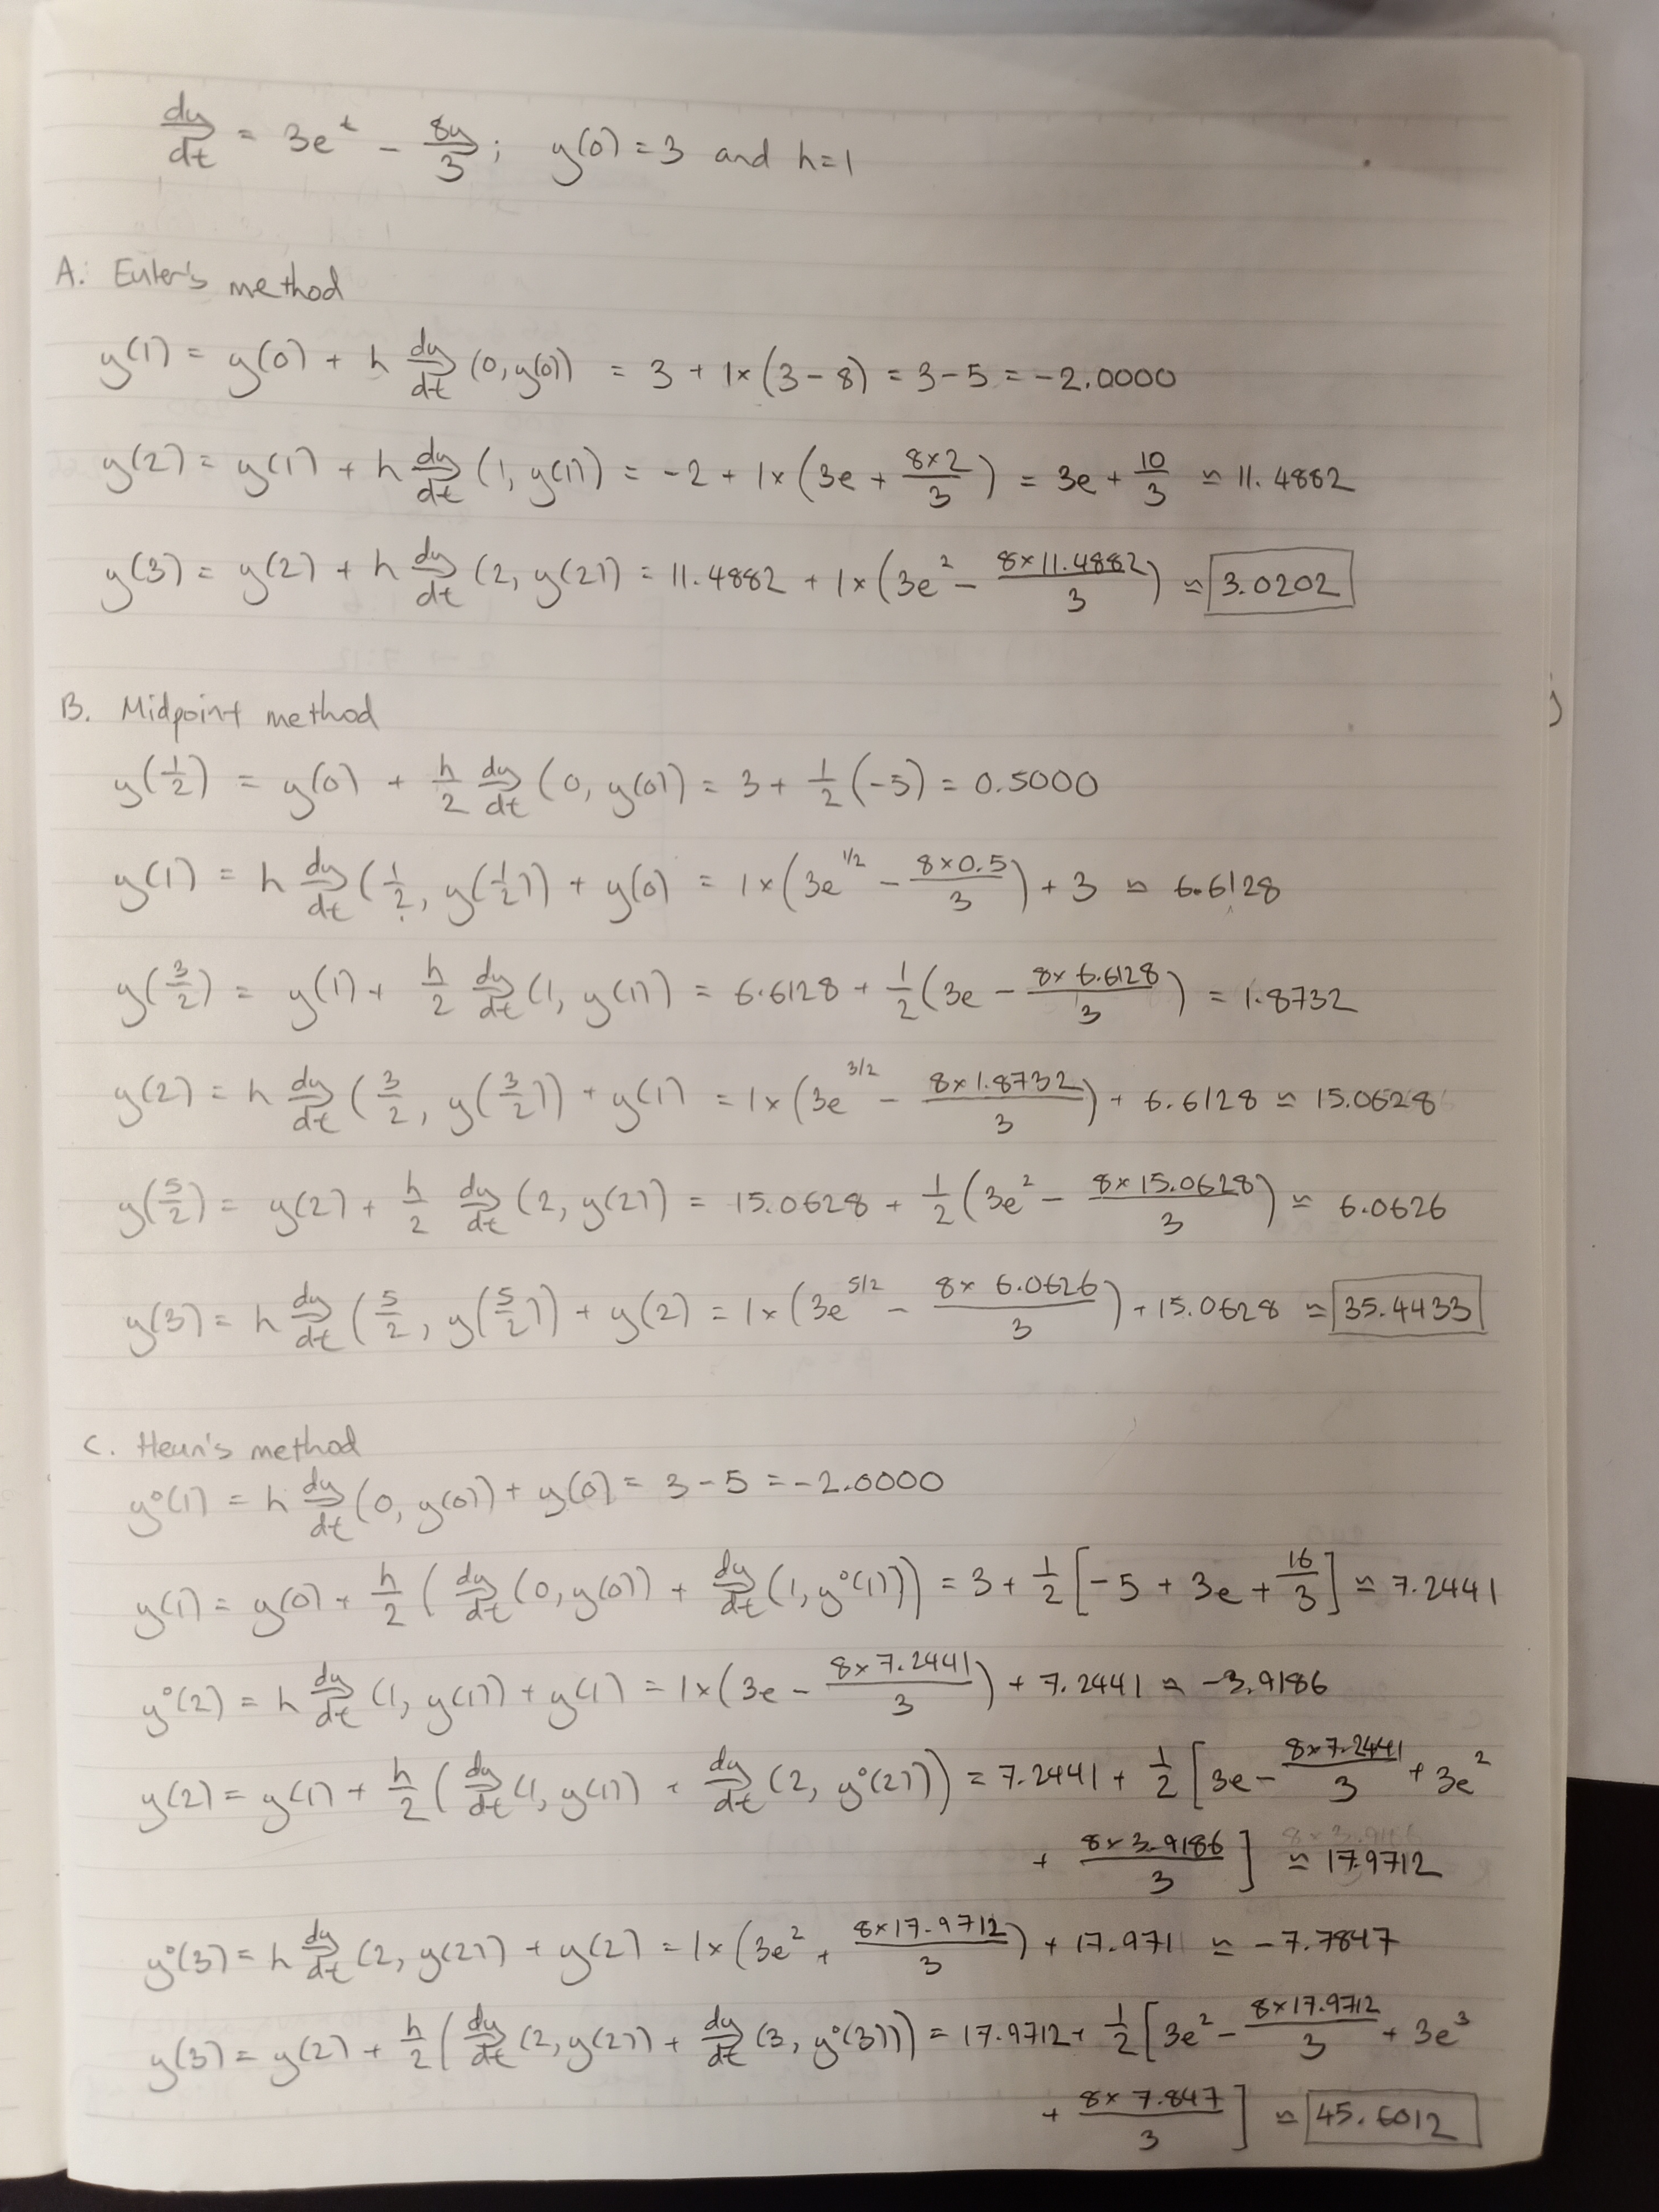 dy/dt = 3e^t - 8y/3; y(0) = 3 and h=1
A. Euler's method
y(1) = y(0) + h dy/dt (0, y(0)) = 3 + 1×(3-8) = 3-5 = -2.0000
y(2) = y(1) + h dy/dt (1, y(1)) = -2 + 1×(3e + 8×2/3) = 3e + 10/3 ≃ 11.4882
y(3) = y(2) + h dy/dt (2, y(2)) = 11.4882 + 1×(3e^2 - 8×11.4882/3) ≃ 3.0202
B. Midpoint method
y(1/2) = y(0) + h/2 dy/dt (0, y(0)) = 3 + 1/2 (-5) = 0.5000
y(1) = h dy/dt (1/2, y(1/2)) + y(0) = 1×(3e^1/2 - 8×0.5/3) + 3 ≃ 6.6128
y(3/2) = y(1) + h/2 dy/dt (1, y(1)) = 6.6128 + 1/2 (3e - 8×6.6128/3) = 1.8732
y(2) = h dy/dt (3/2, y(3/2)) + y(1) = 1×(3e^3/2 - 8×1.8732/3) + 6.6128 ≃ 15.0628
y(5/2) = y(2) + h/2 dy/dt (2, y(2)) = 15.0628 + 1/2 (3e^2 - 8×15.0628/3) ≃ 6.0626
y(3) = h dy/dt (5/2, y(5/2)) + y(2) = 1×(3e^5/2 - 8×6.0626/3) + 15.0628 ≃ 35.4433
C. Heun's method
y°(1) = h dy/dt (0, y(0)) + y(0) = 3-5 = -2.0000
y(1) = y(0) + h/2 (dy/dt (0, y(0)) + dy/dt (1, y°(1))) = 3 + 1/2 [-5 + 3e + 16/3] ≃ 7.2441
y°(2) = h dy/dt (1, y(1)) + y(1) = 1×(3e - 8×7.2441/3) + 7.2441 ≃ -3.9186
y(2) = y(1) + h/2 (dy/dt (1, y(1)) + dy/dt (2, y°(2))) = 7.2441 + 1/2 [3e - 8×7.2441/3 + 3e^2
+ 8×3.9186/3] ≃ 17.9712
y°(3) = h dy/dt (2, y(2)) + y(2) = 1×(3e^2 + 8×17.9712/3) + 17.971 ≃ -7.7847
y(3) = y(2) + h/2 (dy/dt (2, y(2)) + dy/dt (3, y°(3))) = 17.9712 + 1/2 [3e^2 - 8×17.9712/3 + 3e^3
+ 8×7.847/3] ≃ 45.6012